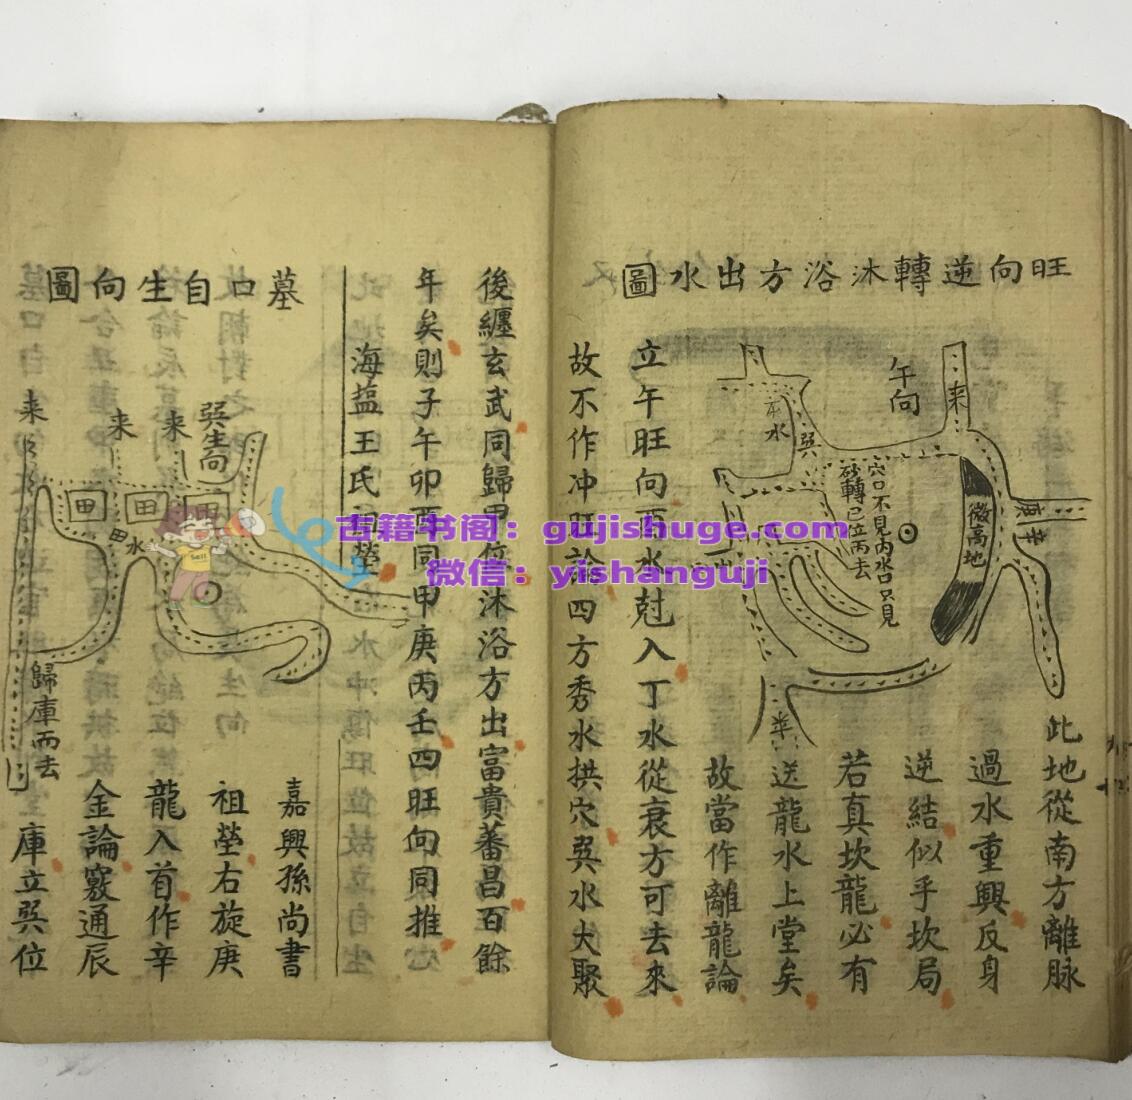 旺向逆轉沐浴方出水圖
此地從南方離脉
過水重興反身
逆結似乎坎局
若真坎龍必有
送龍水上堂矣
故當作離龍論
立午旺向酉水尅入丁水從衰方可去來
故不作冲旺論四方秀水拱穴巽水大聚
午向
来
巽
水
微高地
穴口不見內水口只見
砂轉已位丙去
来
後纏玄武同歸甲位沐浴方出富貴蕃昌百餘
年矣則子午卯酉同甲庚丙壬四旺向同推
海盐王氏祖塋
墓口自生向圖
嘉興孫尚書
祖塋右旋庚
龍入首作辛
金論竅通辰
庫立巽位
巽生向
来
来
来
田
田
田
田水
歸庫而去
古籍书阁：gujishuge.com
微信：yishanguji